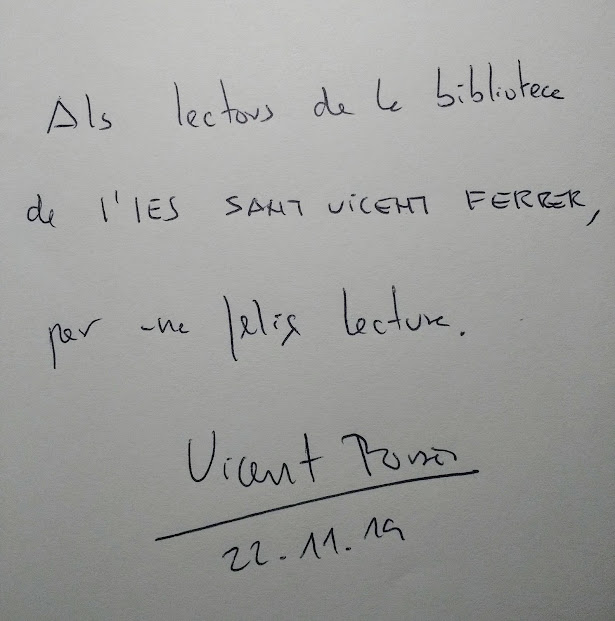 Als lectors de la biblioteca
de l'IES SANT VICENT FERRER,
per una feliç lectura.
Vicent
22.11.19